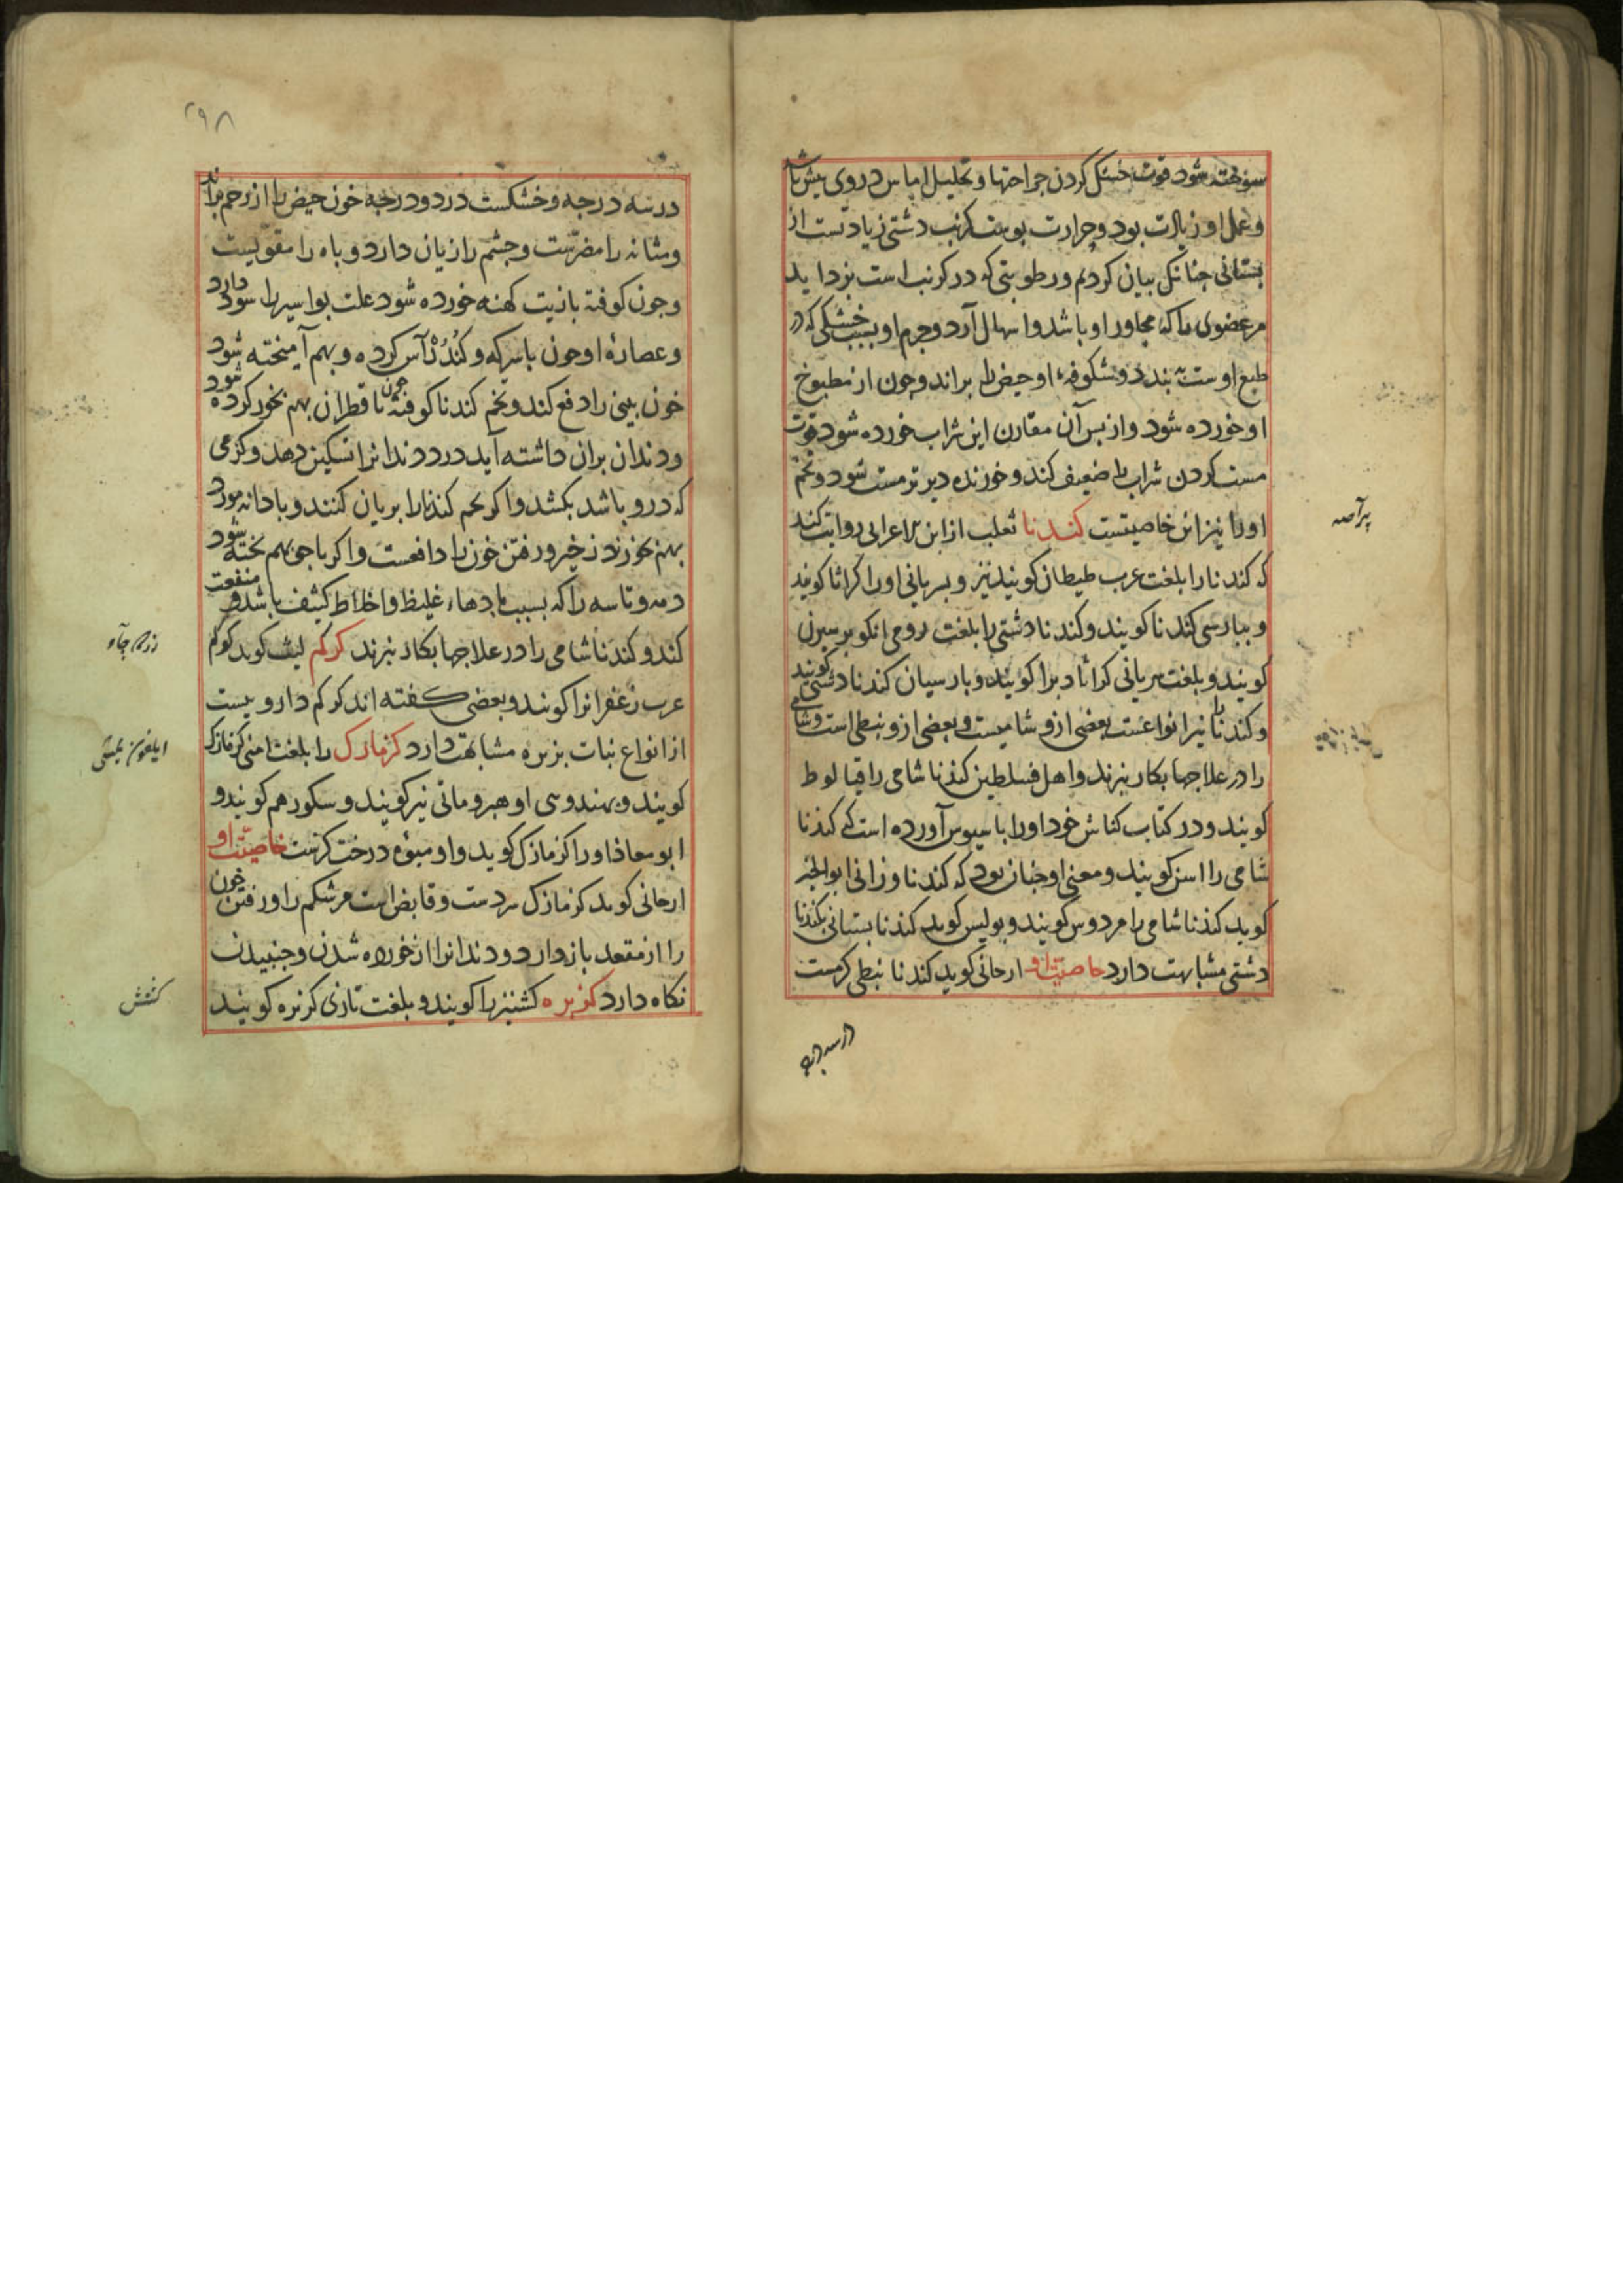 سوخته شود قوت خشک کردن جراحتها و تحلیل اماس در وی بیش باشد
و عمل او زیادت بود و حرارت بوست کرنب دشتی زیادتست از
بستانی جنانک بیان کردیم و رطوبتی که در کرنب است بزداید
مر عضوی را که مجاور او باشد و اسهال آرد و جرم او بسبب خشکی که در
طبع اوست ببندد و شکوفه او حیض را براند و جون از مطبوخ
او خورده شود و از بس آن مقارن این شراب خورده شود قوت
مست کردن شراب را ضعیف کند و خورنده دیرتر مست شود و تخم
او را نیز این خاصیتست کندنا ثعلب از ابن الاعرابی روایت کند
که کندنا را بلغت عرب طیطان کویند نیز و بسریانی او را کراثا کویند
و ببارسی کندنا کویند و کندنا دشتی را بلغت رومی
کویند و بلغت سریانی کراثا دبرا کویند و بارسیان کندنا دشتی کویند
و کندنا را نیز انواعست بعضی ازو شامیست و بعضی ازو نبطی است و شامی
را در علاجها بکار نبرند و اهل فسلطین کندنا شامی را قیالوط
کویند و در کتاب کناش خود او را باسیوس آورده است که کندنا
شامی را اسن کویند و معنی او جنان بود که کندنا وزانی ابوالخیر
کوید کندنا شامی را مردوس کویند و بولیس کوید کندنا بستانی بکندنا
دشتی مشابهت دارد خاصیت او ارجانی کوید کندنا نبطی کرمست
در سه درجه
پیراصه
۲۹۸
در سه درجه و خشکست در دو درجه خون حیض را از رحم براند
و مثانه را مضرتست و جشم را زیان دارد و باه را مقویست
و جون کوفته با زیت کهنه خورده شود علت بواسیر را سود دارد
و عصاره او جون با سرکه و کندر آس کرده و بهم آمیخته شود
خون بینی را دفع کند و تخم کندنا کوفته جون با قطران بهم بخور کرده شود
و دندان بران داشته آید درد دندانرا تسکین دهد و کرمی
که درو باشد بکشد و اکر تخم کندنا را بریان کنند و با دانه مورد
بهم بخورند زخیر و رفتن خون را دافعست و اکر با جو بهم بخته شود
دمه و تاسه را که بسبب بادهاء غلیظ و اخلاط کثیف باشد منفعت
کند و کندنا شامی را در علاجها بکار نبرند کرکم لیث کوید کرکم
عرب زعفرانرا کویند و بعضی کفته اند کرکم دارویست
از انواع نبات بزیره مشابهت دارد کزمازک را بلغت کزمازک
کویند و بهندوی او هبرومانی نیز کویند و سکور هم کویند و
ابو معاذ او را کزمازک کوید و او میوه درخت کزست خاصیت او
ارجانی کوید کزمازک سردست و قابض است مر شکم را و رفتن خون
را از مقعد بازدارد و دندانرا از خورده شدن و جنبیدن
نکاه دارد کزبره کشنیز را کویند و بلغت تازی کزبره کویند
زردجاو
ایلغون یمشی
کشنش